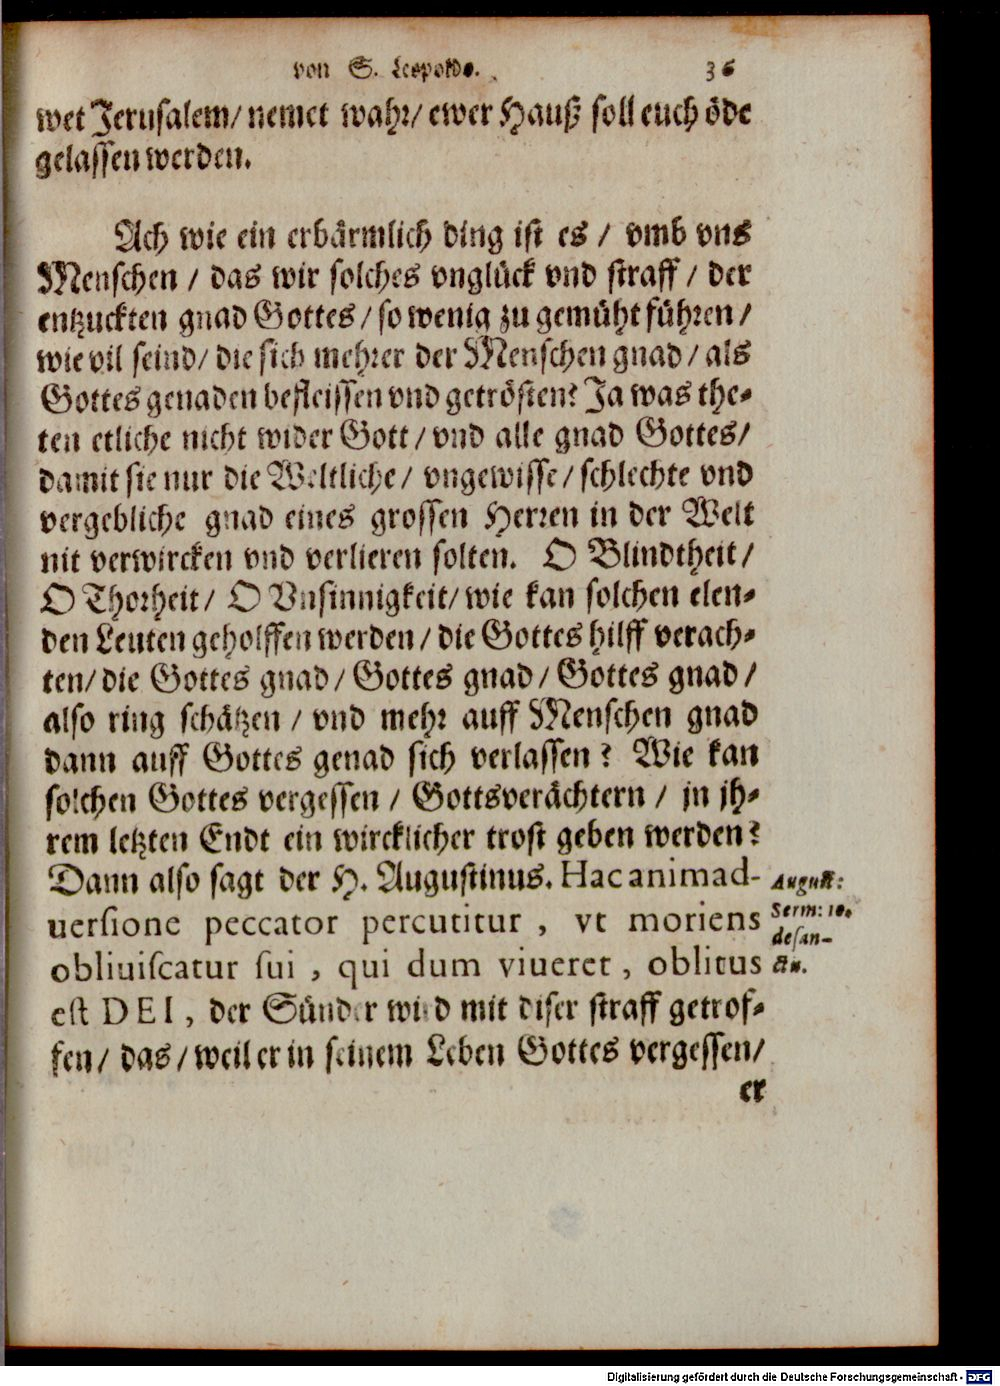 von S. Leopoldo. 36
wet Jerusalem/ nemet wahr/ ewer Hauß soll euch öde
gelassen werden.
Ach wie ein erbärmlich ding ist es / vmb vns
Menschen / das wir solches vnglück vnd straff / der
entzuckten gnad Gottes / so wenig zu gemüht führen /
wie vil seind/ die sich mehrer der Menschen gnad / als
Gottes genaden befleissen vnd getrösten? Ja was the-
ten etliche nicht wider Gott / vnd alle gnad Gottes/
damit sie nur die Weltliche/ vngewisse/ schlechte vnd
vergebliche gnad eines grossen Herren in der Welt
nit verwircken vnd verlieren solten. O Blindtheit/
O Thorheit/ O Vnsinnigkeit/ wie kan solchen elen-
den Leuten geholffen werden / die Gottes hilff verach-
ten/ die Gottes gnad / Gottes gnad / Gottes gnad /
also ring schätzen / vnd mehr auff Menschen gnad
dann auff Gottes genad sich verlassen? Wie kan
solchen Gottes vergessen / Gottsverächtern / jn jh-
rem letzten Endt ein wircklicher trost geben werden?
Dann also sagt der H. Augustinus. Hac animad-
uersione peccator percutitur , vt moriens
obliuiscatur sui , qui dum viueret , oblitus
est DEI , der Sünder wird mit diser straff getrof-
fen/ das / weil er in seinem Leben Gottes vergessen/
er
August:
Serm: 10.
de san-
ctis.
Digitalisierung gefördert durch die Deutsche Forschungsgemeinschaft - DFG